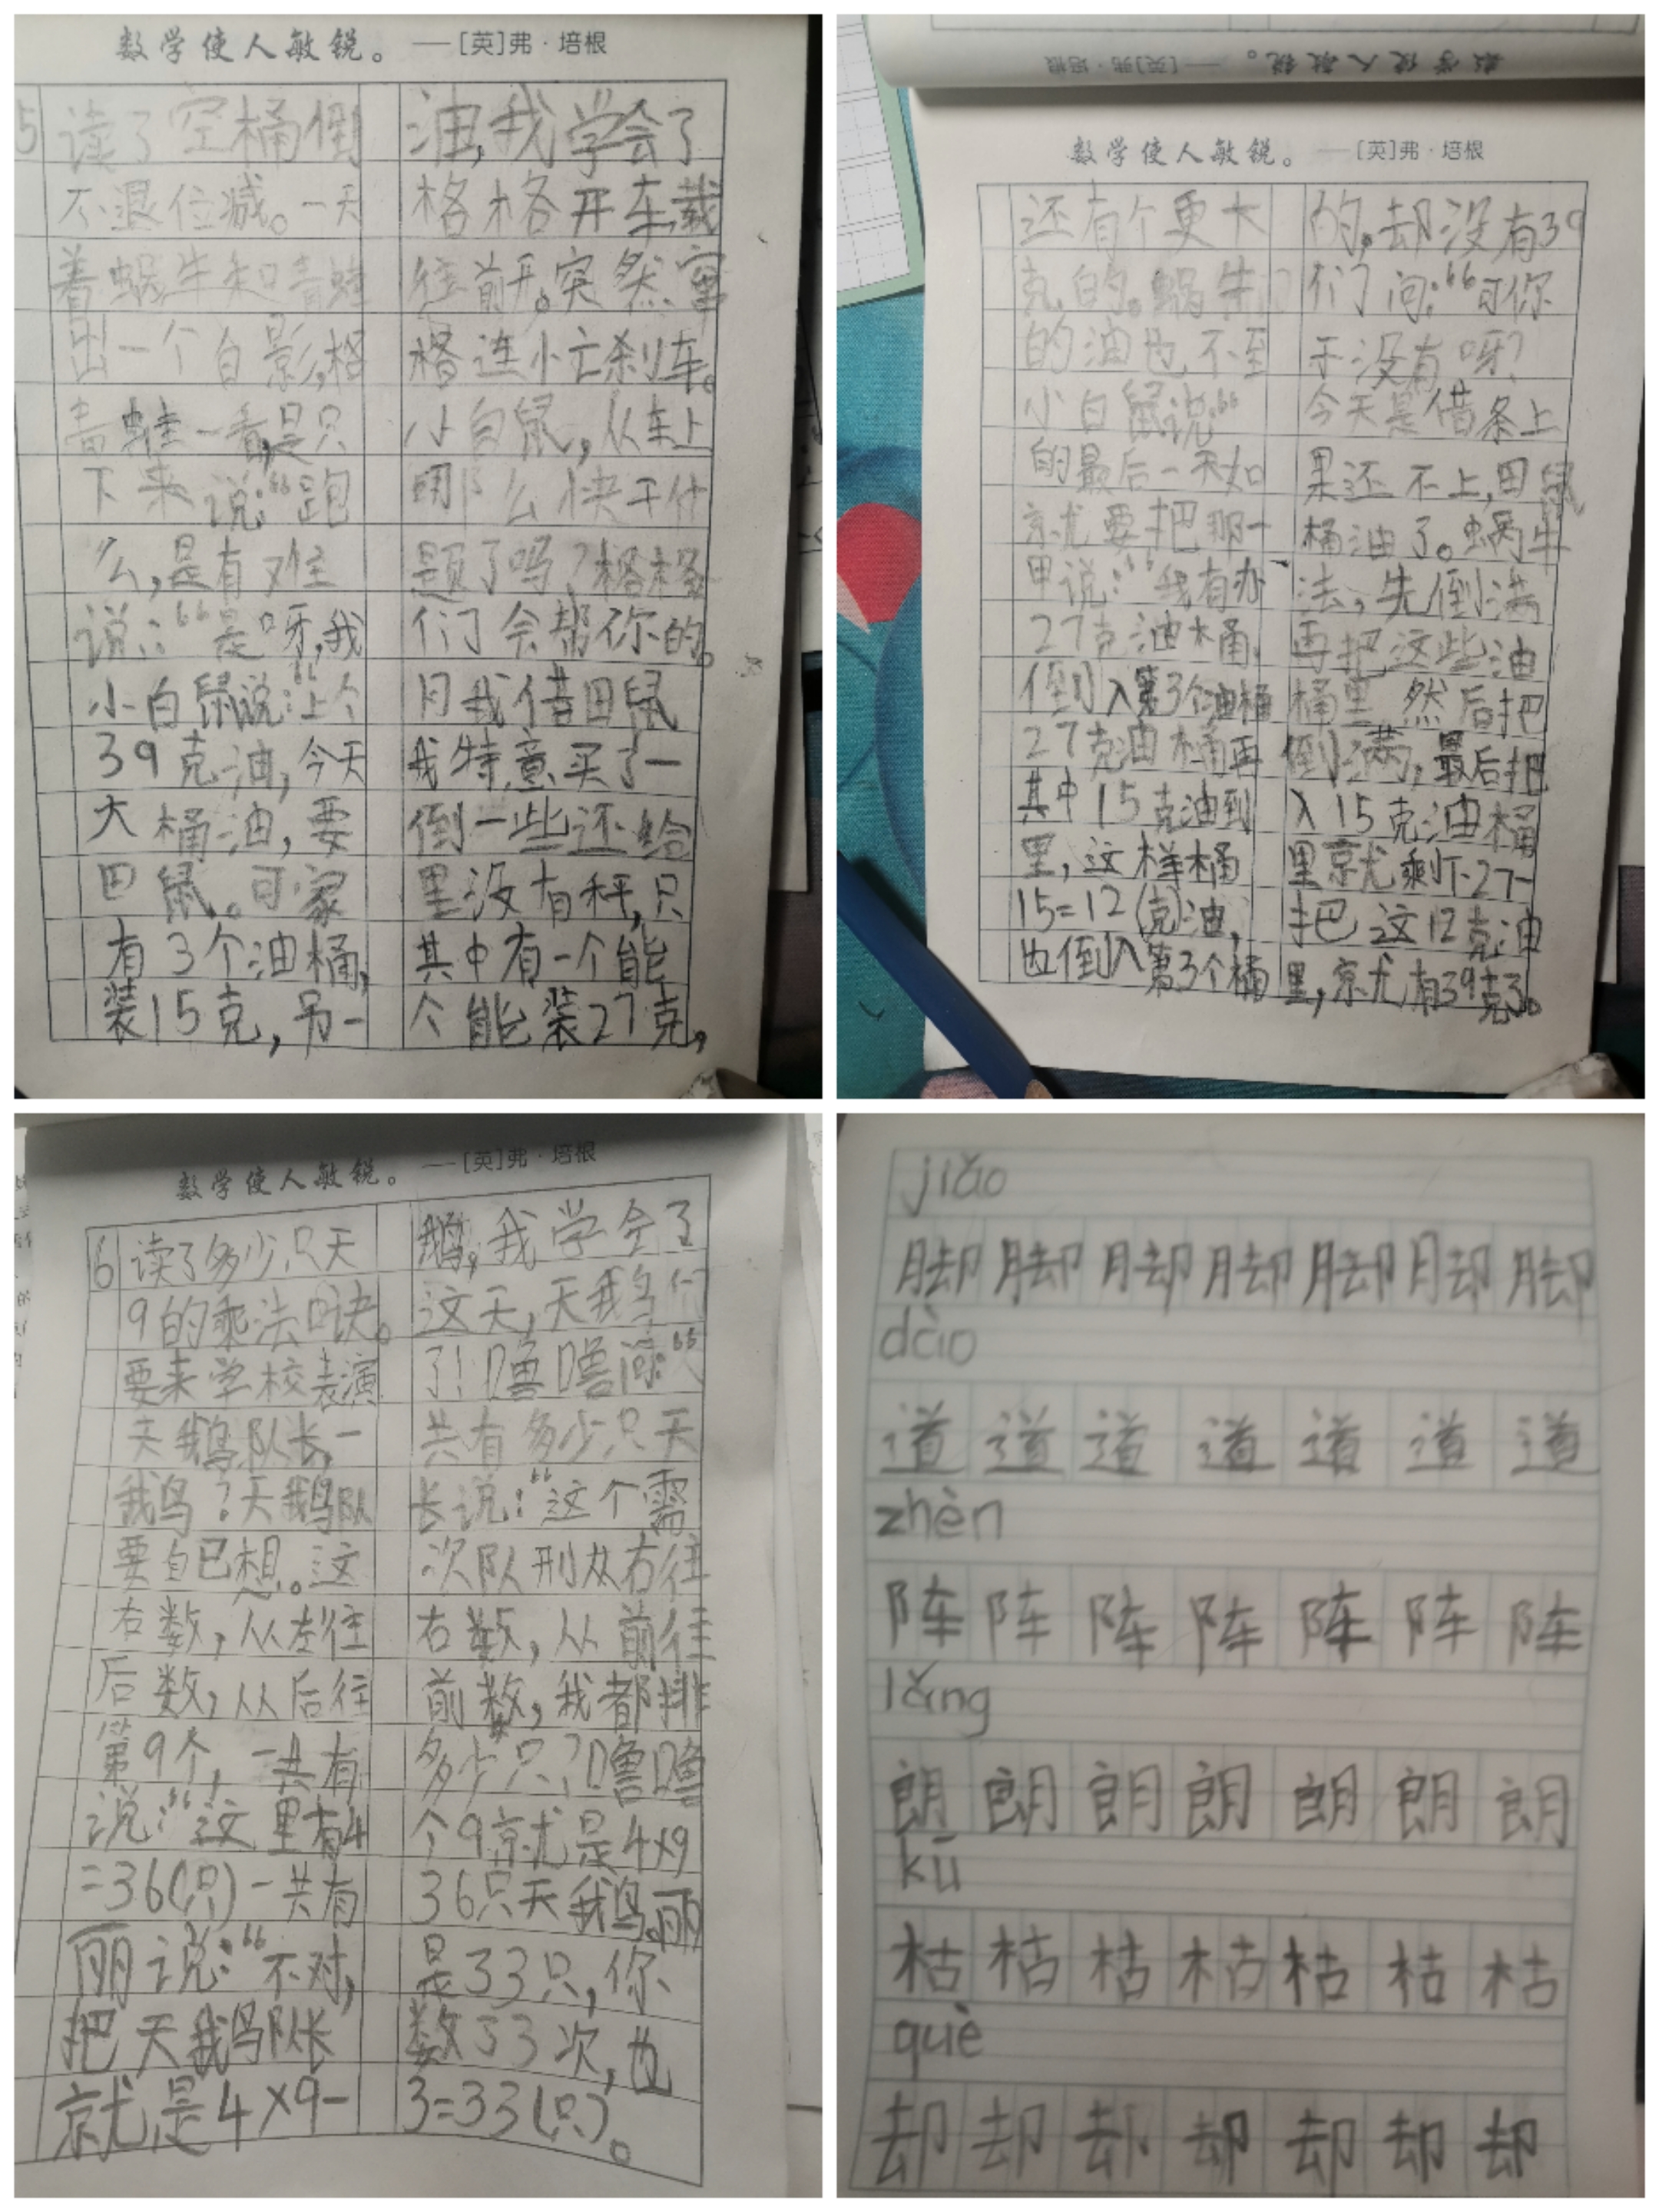 数学使人敏锐。——[英]弗·培根
5 读了空桶倒油,我学会了
不退位减。一天格格开车载
着蜗牛和青蛙往前开。突然窜
出一个白影,格格连忙刹车。
青蛙一看,是只小白鼠,从车上
下来说:“跑那么快干什
么,是有难题了吗?格格
说:“是呀,我们会帮你的。
小白鼠说:“上个月我借田鼠
39克油,今天我特意买了一
大桶油,要倒一些还给
田鼠。可家里没有秤,只
有3个油桶,其中有一个能
装15克,另一个能装27克,
数学使人敏锐。——[英]弗·培根
数学使人敏锐。——[英]弗·培根
还有个更大的,却没有39
克的。蜗牛们问:“可你
的油也不至于没有呀?
小白鼠说:“今天是借条上
的最后一天如果还不上,田鼠
就要把那一桶油了。蜗牛
甲说:“我有办法,先倒满
27克油桶,再把这些油
倒入第3个油桶桶里然后把
27克油桶再倒满,最后把
其中15克油到入15克油桶
里,这样桶里就剩下27-
15=12(克)油,把这12克油
也倒入第3个桶里,就有39克了。
数学使人敏锐。——[英]弗·培根
6 读了多少只天鹅,我学会了
9的乘法口诀。这天,天鹅们
要来学校表演了!噜噜问:“
天鹅队长,一共有多少只天
鹅?天鹅队长说:“这个需
要自己想。这次队形从右往
右数,从左往右数,从前往
后数,从后往前数,我都排
第9个,一共有多少只?噜噜
说:“这里有4个9就是4×9
=36(只)一共有36只天鹅。丽
丽说:“不对,是33只,你
把天鹅队长数了3次,也
就是4×9-3=33(只)。
jiǎo
脚脚脚脚脚脚脚
dào
道道道道道道道
zhèn
阵阵阵阵阵阵阵
lǎng
朗朗朗朗朗朗朗
kū
枯枯枯枯枯枯枯
què
却却却却却却却